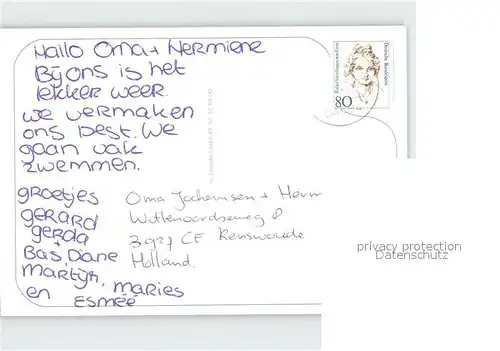 Hallo Oma + Hermiene
Bij ons is het
lekker weer.
we vermaken
ons best. We
gaan vak
zwemmen.
groetjes
gerard
gerda
+
Bas Diane
Martijn, Maries
en Esmée
Oma Jochemsen + Herm
8
3927 CF Renswoude
Holland.
80
Deutsche Bundespost
privacy protection
Datenschutz